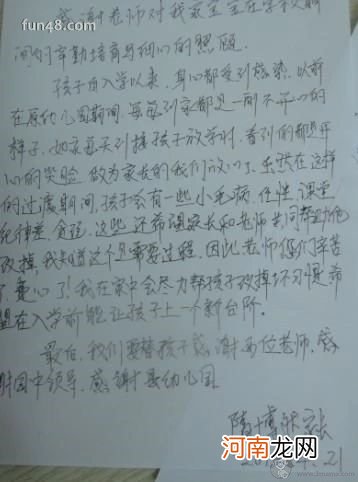 fun48.com
感谢老师对我家宝宝在学校期
间的辛勤培育与细心的照顾
孩子自入学以来，身心都受到感染，以前
在原幼儿园期间，每每到家都是一副不开心的
样子，如家每天到接孩子放学时，看到的都是开
心的笑脸，做为家长的我们放心了，虽然在这样
的过渡期间，孩子会有一些小毛病，任性，课堂
纪律差，贪玩，这些还希望家长和老师共同帮助他
改掉，我知道这个是需要过程，因此老师您们辛苦
了，费心了！我在家中会尽力帮孩子改掉坏习惯，希
望在入学前能让孩子上一个新台阶。
最后，我们要替孩子感谢两位老师，感
谢园中领导，感谢县幼儿园。
家长
21
河南龙网